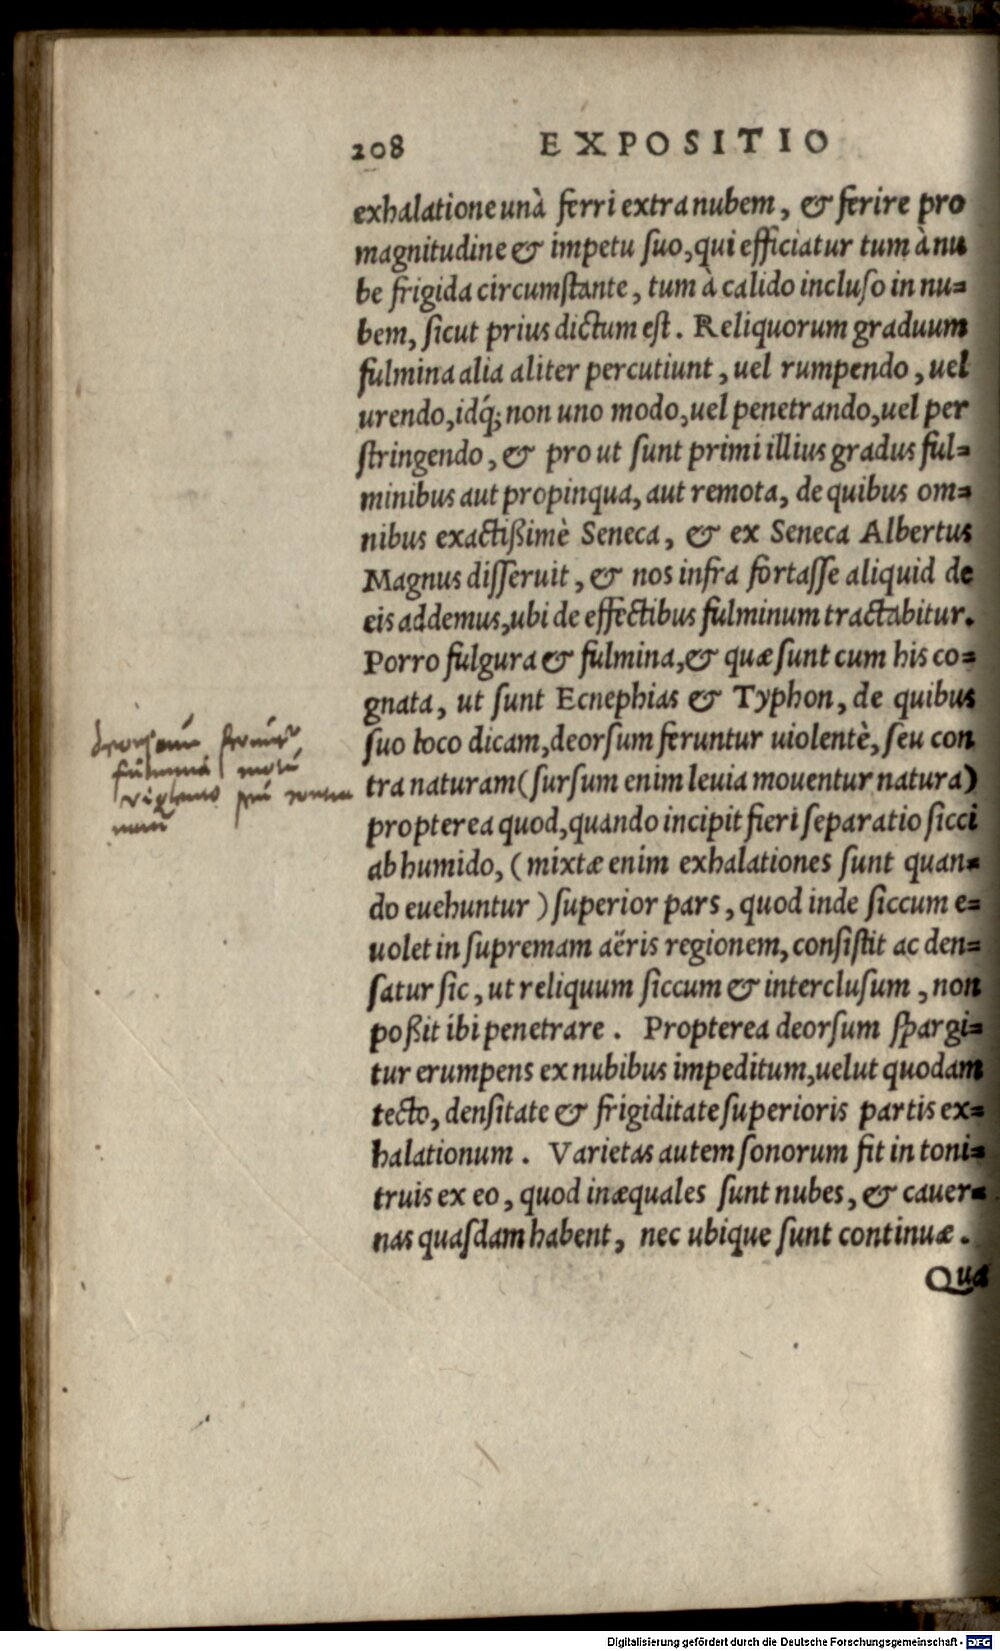 208 EXPOSITIO
exhalatione unà ferri extra nubem, & ferire pro
magnitudine & impetu suo, qui efficiatur tum à nu
be frigida circumstante, tum à calido incluso in nu=
bem, sicut prius dictum est. Reliquorum graduum
fulmina alia aliter percutiunt, uel rumpendo, uel
urendo, idq́; non uno modo, uel penetrando, uel per
stringendo, & pro ut sunt primi illius gradus ful=
minibus aut propinqua, aut remota, de quibus om=
nibus exactißimè Seneca, & ex Seneca Albertus
Magnus disseruit, & nos infra fortasse aliquid de
eis addemus, ubi de effectibus fulminum tractabitur.
Porro fulgura & fulmina, & quæ sunt cum his co=
gnata, ut sunt Ecnephias & Typhon, de quibus
suo loco dicam, deorsum feruntur uiolentè, seu con
tra naturam (sursum enim leuia mouentur natura)
propterea quod, quando incipit fieri separatio sicci
ab humido, (mixtæ enim exhalationes sunt quan=
do euehuntur) superior pars, quod inde siccum e=
uolet in supremam aëris regionem, consistit ac den=
satur sic, ut reliquum siccum & interclusum, non
poßit ibi penetrare. Propterea deorsum spargi=
tur erumpens ex nubibus impeditum, uelut quodam
tecto, densitate & frigiditate superioris partis ex=
halationum. Varietas autem sonorum fit in toni=
truis ex eo, quod inæquales sunt nubes, & cauer=
nas quasdam habent, nec ubique sunt continuæ.
Qua
deorsum
fulmina motu
Digitalisierung gefördert durch die Deutsche Forschungsgemeinschaft - DFG